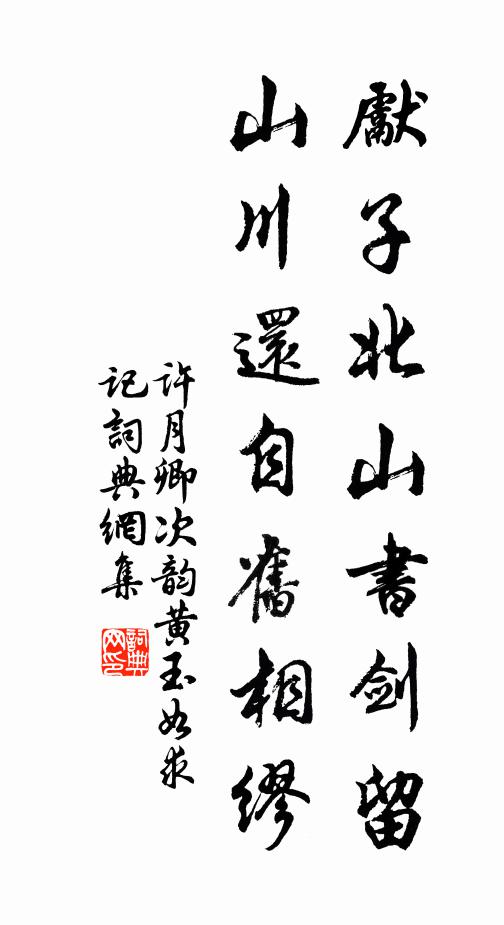 獻子北山書劍留
山川還自舊相繆
許月卿次韵黄玉如求
記詞典網集
詞典网印